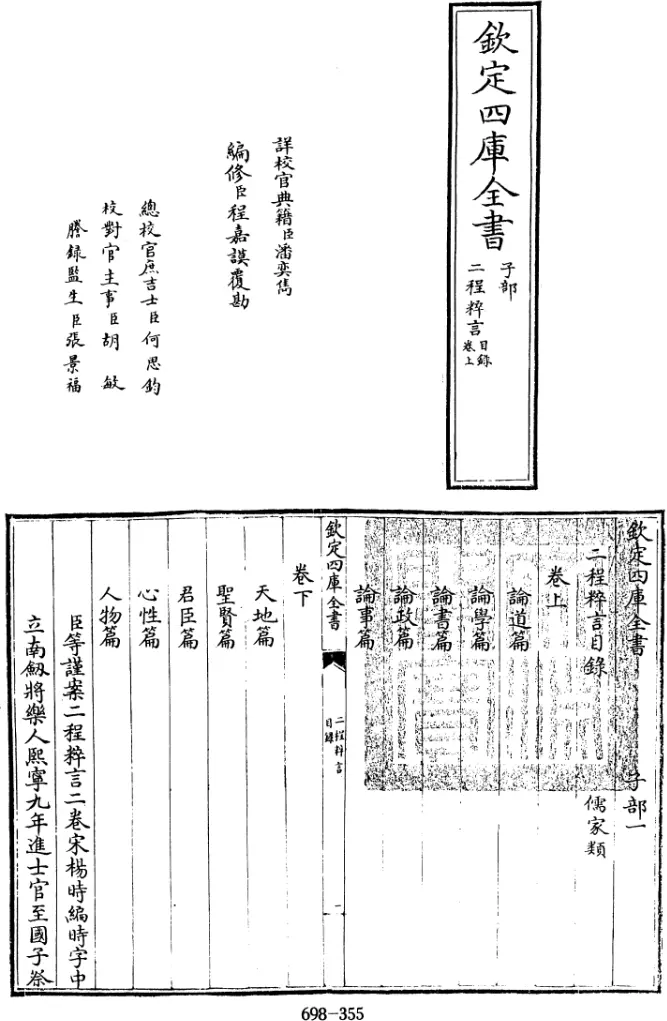 欽定四庫全書
子部
二程粹言
目錄
卷上
詳校官典籍臣潘奕雋
編修臣程嘉謨覆勘
總校官庶吉士臣何思鈞
校對官主事臣胡敏
謄錄監生臣張景福
欽定四庫全書 子部一
二程粹言目錄 儒家類
卷上
論道篇
論學篇
論書篇
論政篇
論事篇
欽定四庫全書 二程粹言 目錄 一
卷下
天地篇
聖賢篇
君臣篇
心性篇
人物篇
臣等謹案二程粹言二卷宋楊時編時字中
立南劔將樂人熙寧九年進士官至國子祭
698-355